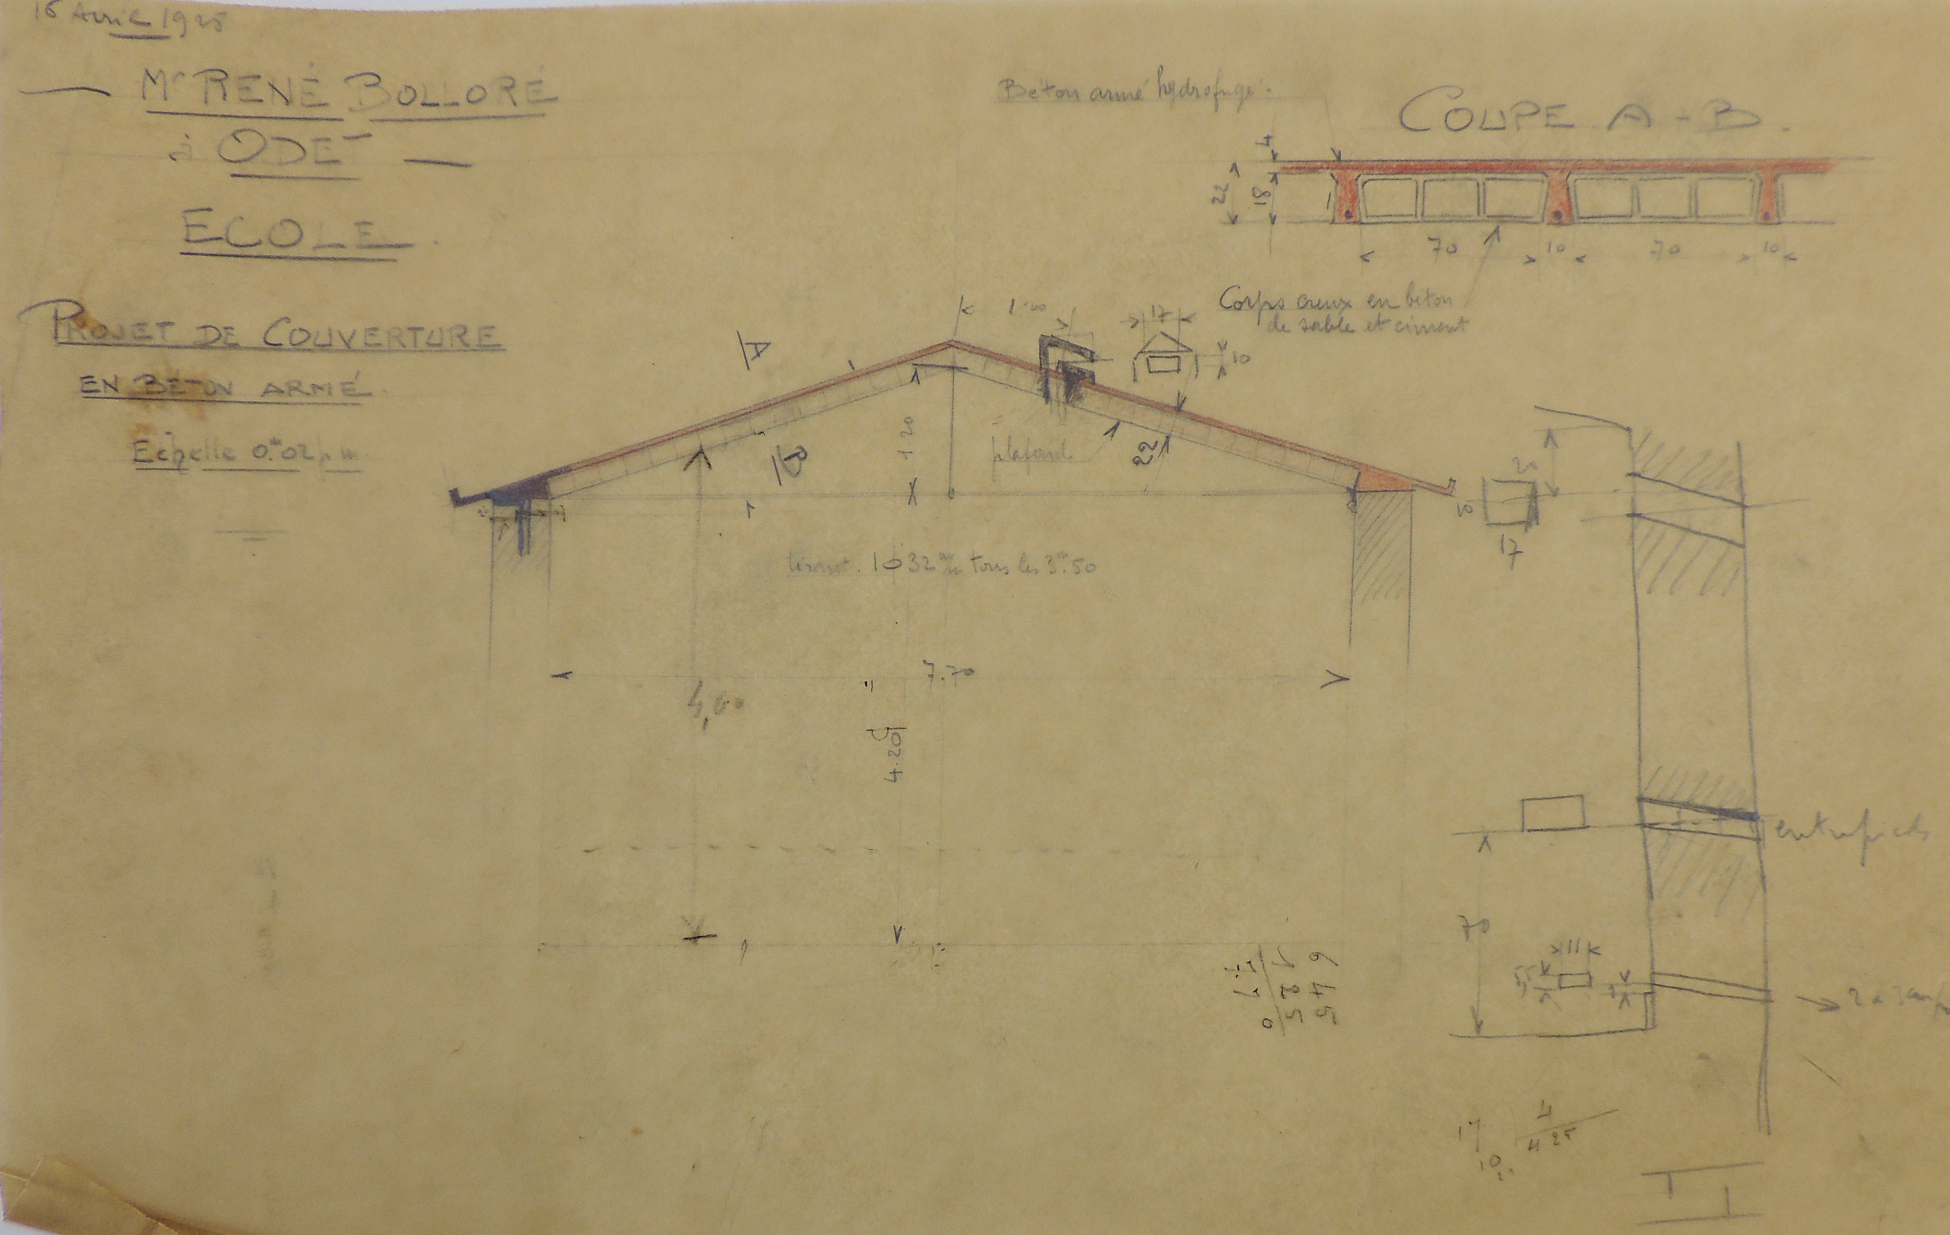 16 Avril 1928
Mr RENÉ BOLLORÉ
à ODET
ECOLE.
PROJET DE COUVERTURE
EN BETON ARMÉ.
Echelle 0m.02 p m
Béton armé hydrofugé.
COUPE A-B.
4
22
18
70
10
70
10
Corps creux en béton
de sable et ciment
1.00
17
10
A
B
1.20
plafond
22
20
17
tirant. 1 Ø 32 m/m tous les 3m.50
7.70
4,00
4.20
entrepieds
70
11
5,5
6 75
1 85
17
10
4
4 25